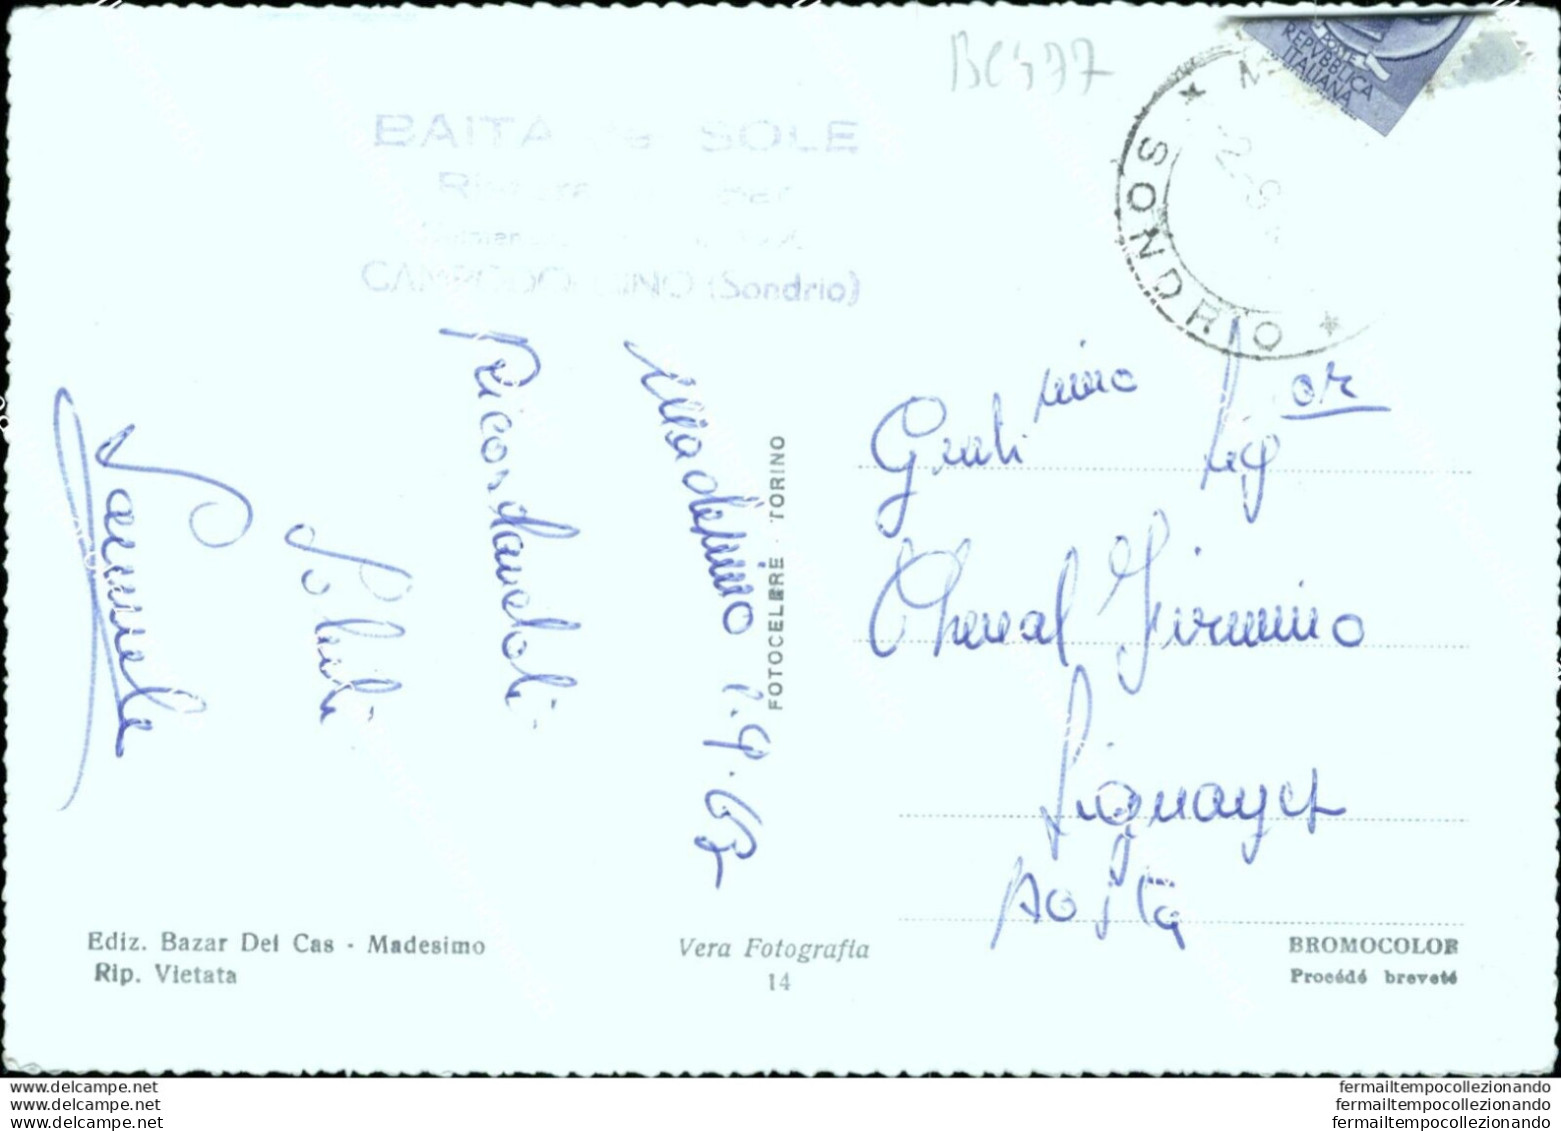 BC577
BAITA SOLE
CAMPODOLCINO (Sondrio)
REPVBBLICA
ITALIANA
POSTE
SONDRIO
Madesimo 1.9.62
Ricordandoti
FOTOCELERE · TORINO
Gentilissimo Sigor
Cheval Firmino
Signayes
Aosta
Ediz. Bazar Del Cas - Madesimo
Rip. Vietata
Vera Fotografia
14
BROMOCOLOR
Procédé breveté
www.delcampe.net
www.delcampe.net
www.delcampe.net
fermailtempocollezionando
fermailtempocollezionando
fermailtempocollezionando